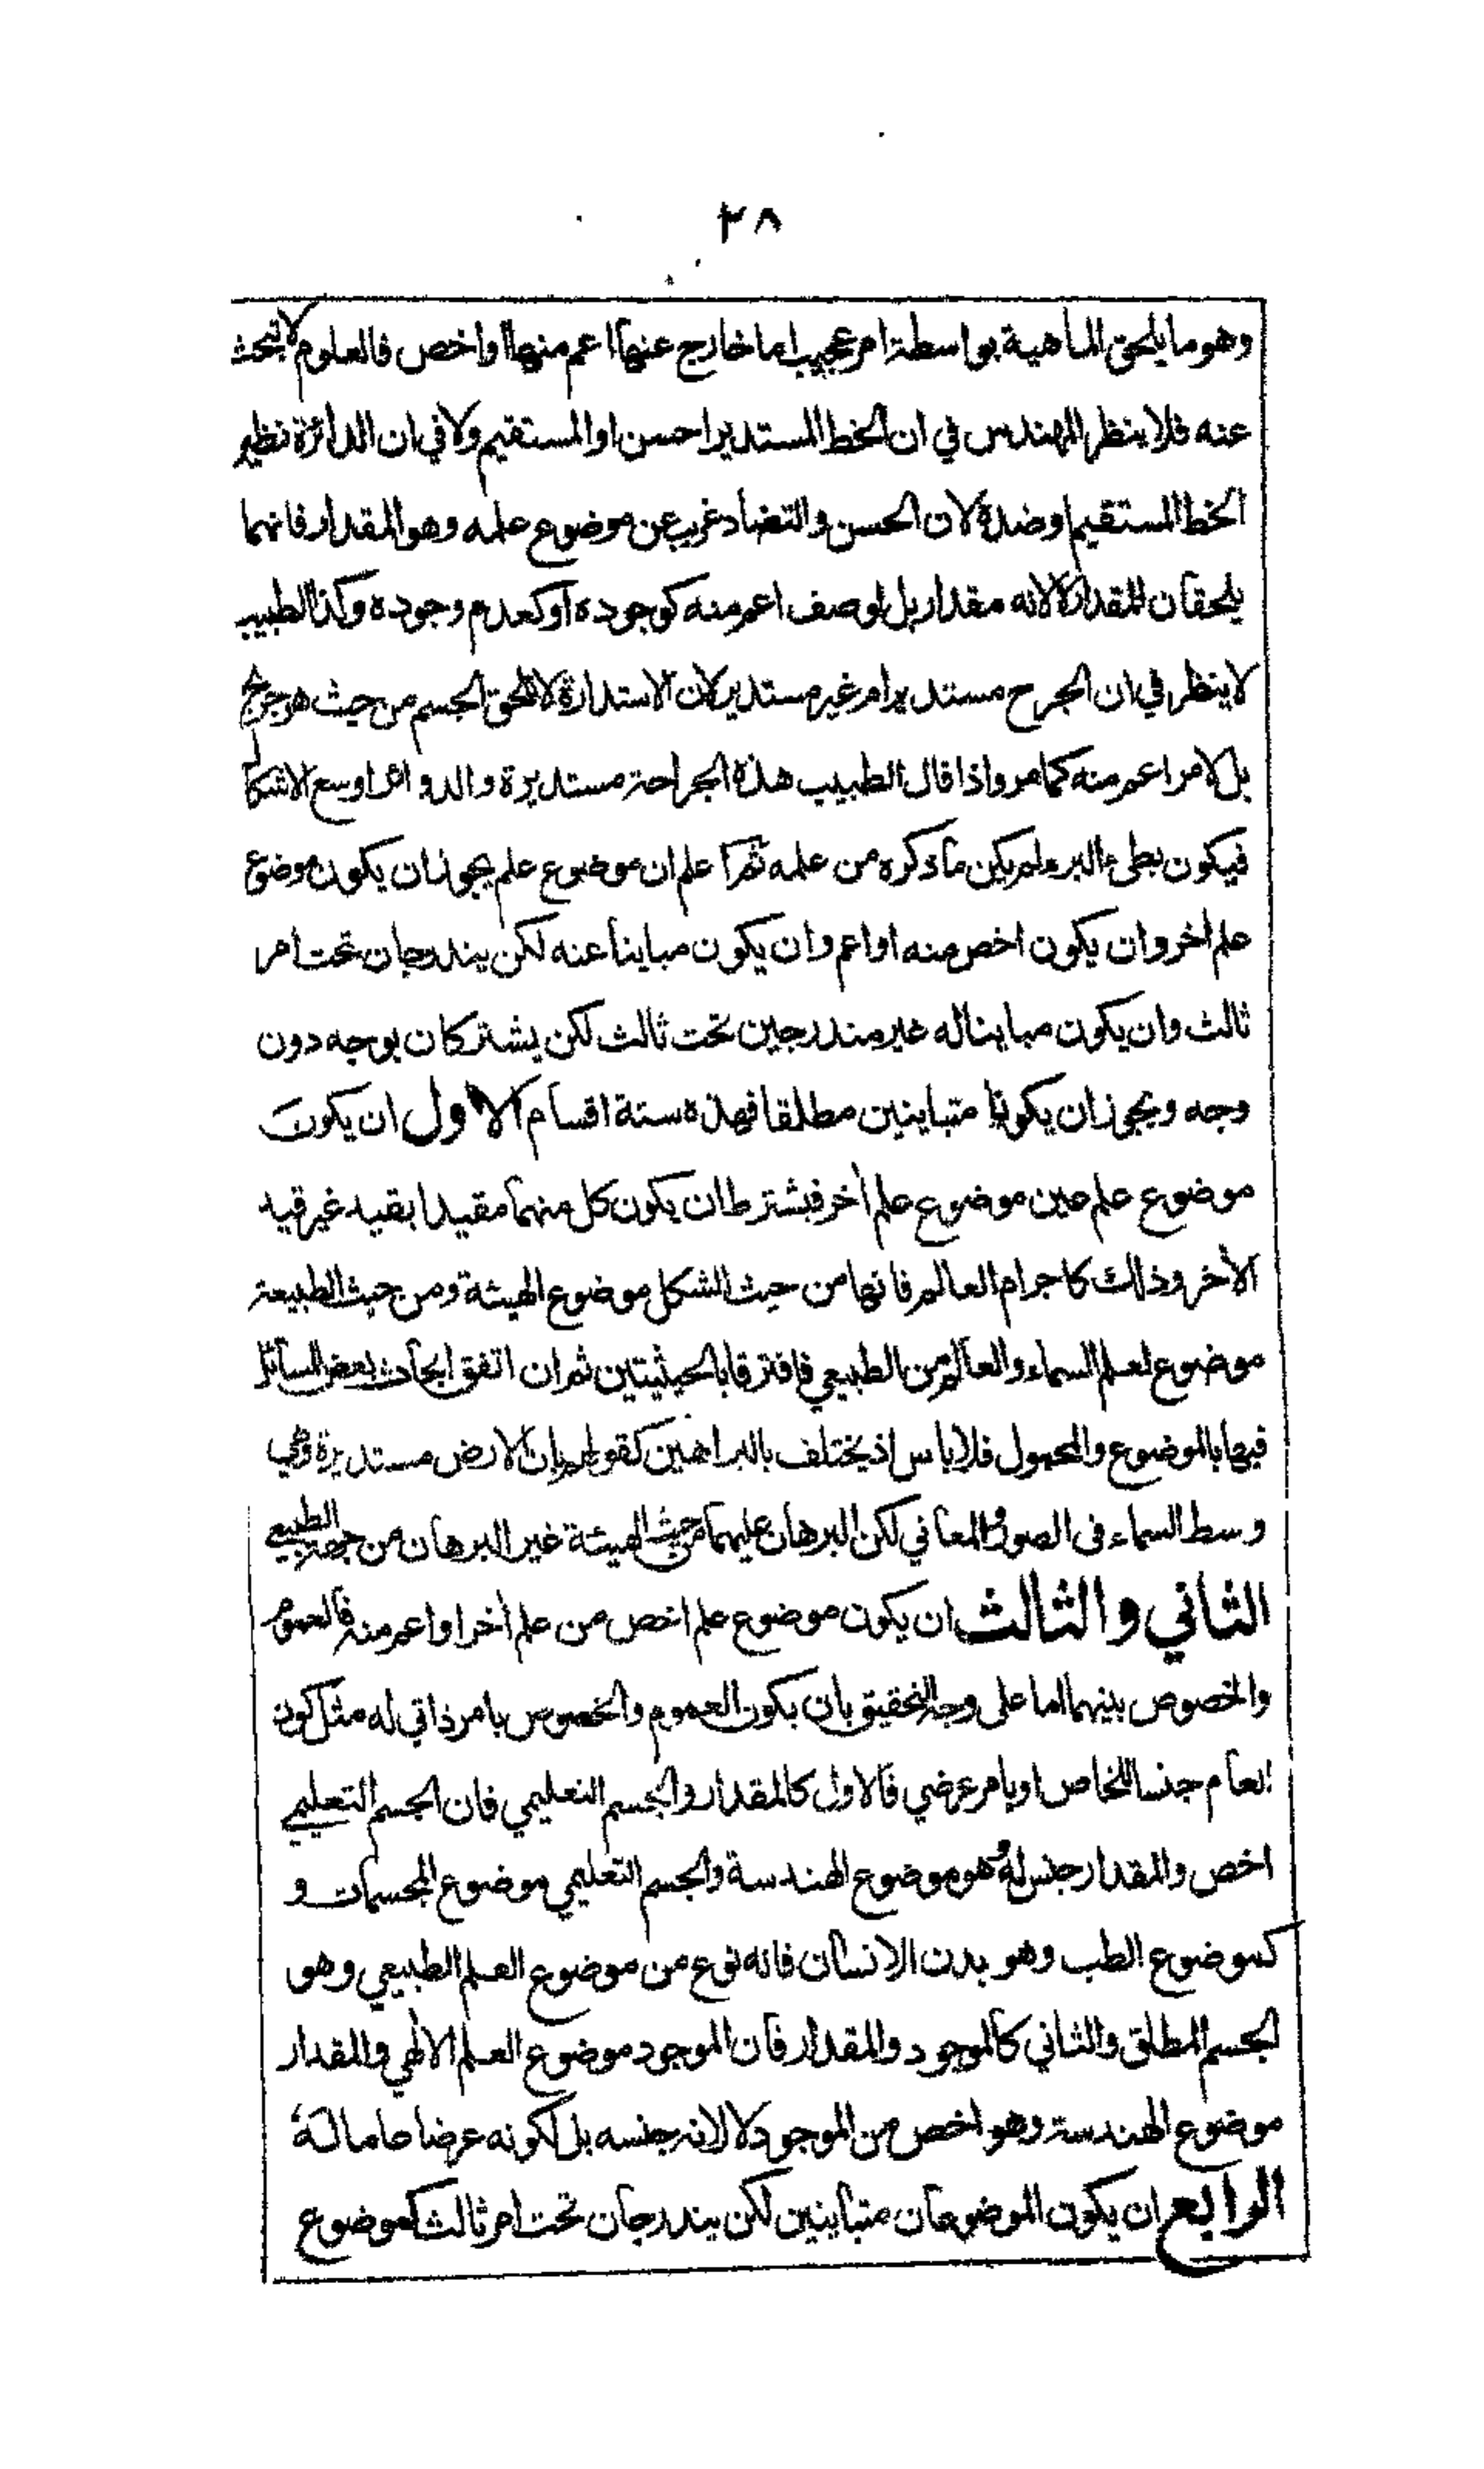 ٣٨
وهو ما يلحق الماهية بواسطة امر عجيب اما خارج عنها اعم منها او اخص فالعلوم لا تبحث
عنه فلا ينظر المهندس في ان الخط المستدير احسن او المستقيم ولا في ان الدائرة نظير
الخط المستقيم او ضده لان الحسن والتضاد غريب عن موضوع علمه وهو المقدار فانهما
يلحقان المقدار لا لانه مقدار بل لوصف اعم منه كوجوده او كعدم وجوده وكذا الطبيب
لا ينظر في ان الجرح مستدير ام غير مستدير لان الاستدارة لا تلحق الجسم من حيث هو جرح
بل لامر اعم منه كما مر واذا قال الطبيب هذه الجراحة مستديرة والدوائر اوسع الاشكا
فيكون بطىء البر ولم يكن ما ذكره من علمه ثم اعلم ان موضوع علم يجوز ان يكون موضوع
علم اخر وان يكون اخص منه او اعم وان يكون مباينا عنه لكن يندرجان تحت امر
ثالث وان يكون مباينا له غير مندرجين تحت ثالث لكن يشتركان بوجه دون
وجه ويجوز ان يكونا متباينين مطلقا فهذه ستة اقسام الاول ان يكون
موضوع علم عين موضوع علم اخر فيشترط ان يكون كل منهما مقيدا بقيد غير قيد
الأخر وذلك كاجرام العالم فانها من حيث الشكل موضوع الهيئة ومن حيث الطبيعة
موضوع لعلم السماء والعالم من الطبيعي فافترقا بالحيثيتين ثم ان اتفق ابحاث بعض المسائل
فيها بالموضوع والمحمول فلا باس اذ يختلف بالبراهين كقولهم بان الارض مستديرة وهي
وسط السماء فى الصور والمعاني لكن البرهان عليهما من حيث الهيئة غير البرهان من جهة الطبيعي
الثاني والثالث ان يكون موضوع علم اخص من علم أخر او اعم منه فالعموم
والخصوص بينهما اما على وجه التحقيق بان يكون العموم والخصوص بامر ذاتي له مثل كون
العام جنسا للخاص او بامر عرضي فالاول كالمقدار والجسم التعليمي فان الجسم التعليمي
اخص والمقدار جنس له وهو موضوع الهندسة والجسم التعليمي موضوع المجسمات و
كموضوع الطب وهو بدن الانسان فانه نوع من موضوع العلم الطبيعي وهو
الجسم المطلق والثاني كالموجود والمقدار فان الموجود موضوع العلم الالهي والمقدار
موضوع الهندسة وهو اخص من الموجود لا لانه جنسه بل لكونه عرضا عاما له
الرابع ان يكون الموضوعان متباينين لكن يندرجان تحت امر ثالث كموضوع